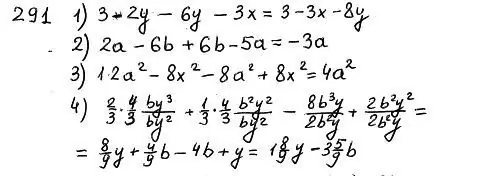 291 1) 3 - 2y - 6y - 3x = 3 - 3x - 8y
2) 2a - 6b + 6b - 5a = -3a
3) 1·2a² - 8x² - 8a² + 8x² = 4a²
4) 2/3 · 4/3 by³/by² + 1/3 · 4/3 b²y²/by² - 8b³y/2b²y + 2b²y²/2b²y =
= 8/9 y + 4/9 b - 4b + y = 1 8/9 y - 3 5/9 b